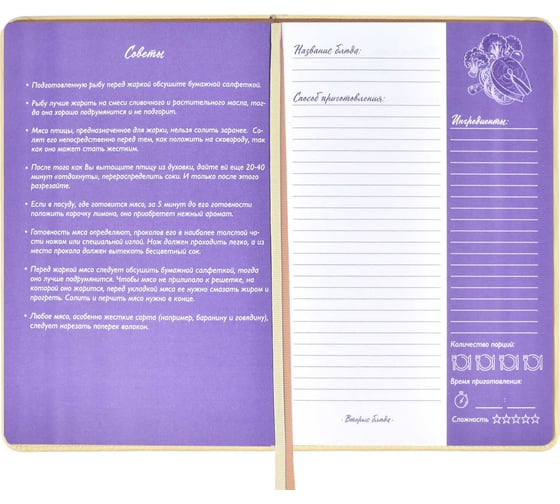 Советы
• Подготовленную рыбу перед жаркой обсушите бумажной салфеткой.
• Рыбу лучше жарить на смеси сливочного и растительного масла, тог-
да она хорошо подрумянится и не подгорит.
• Мясо птицы, предназначенное для жарки, нельзя солить заранее. Со-
лят его непосредственно перед тем, как положить на сковороду, так
как оно может стать жестким.
• После того как Вы вытащите птицу из духовки, дайте ей еще 20-40
минут «отдохнуть», перераспределить соки. И только после этого
разрезайте.
• Если в посуду, где готовится мясо, за 5 минут до его готовности
положить корочку лимона, оно приобретет нежный аромат.
• Готовность мяса определяют, проколов его в наиболее толстой ча-
сти ножом или специальной иглой. Нож должен проходить легко, а из
места прокола должен вытекать бесцветный сок.
• Перед жаркой мясо следует обсушить бумажной салфеткой, тогда
оно лучше подрумянится. Чтобы мясо не прилипало к решетке, на
которой оно жарится, перед укладкой мяса ее нужно смазать жиром и
прогреть. Солить и перчить мясо нужно в конце.
• Любое мясо, особенно жесткие сорта (например, баранину и говядину),
следует нарезать поперек волокон.
Название блюда:
Способ приготовления:
- Вторые блюда -
Ингредиенты:
Количество порций:
Время приготовления:
:
Сложность